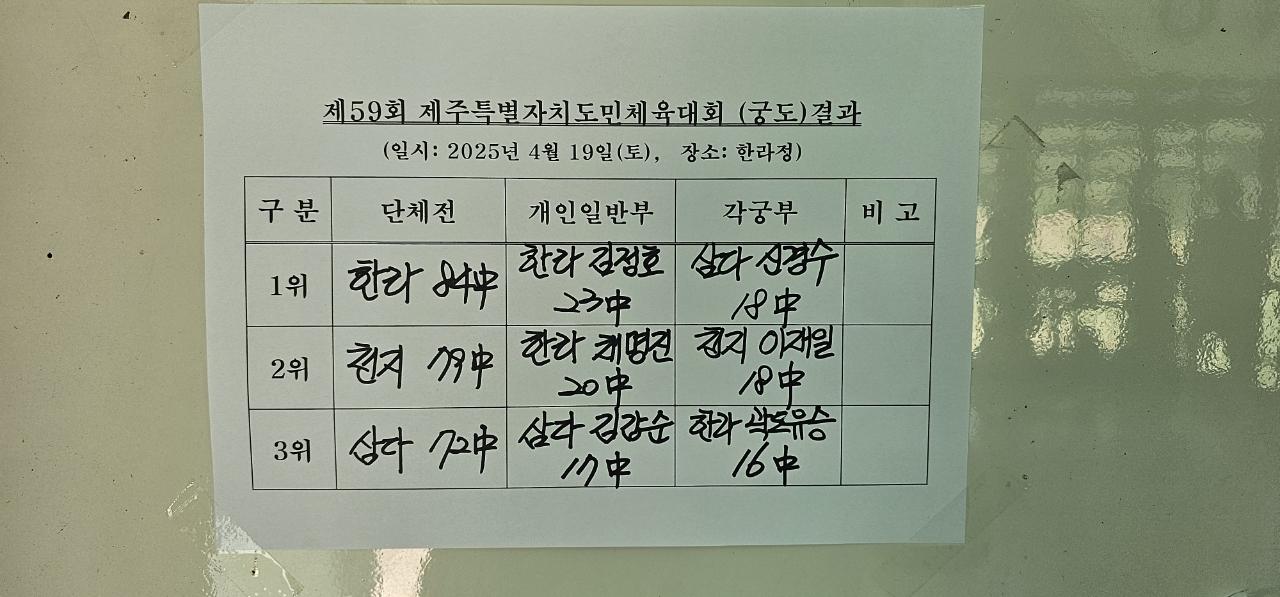 제59회 제주특별자치도민체육대회 (궁도)결과
(일시: 2025년 4월 19일(토), 장소: 한라정)
구 분 단체전 개인일반부 각궁부 비 고
1위 한라 84中 한라 김정호 23中 삼다 신경수 18中
2위 천지 79中 한라 채명진 20中 천지 이재일 18中
3위 삼다 72中 삼다 김강순 17中 한라 16中